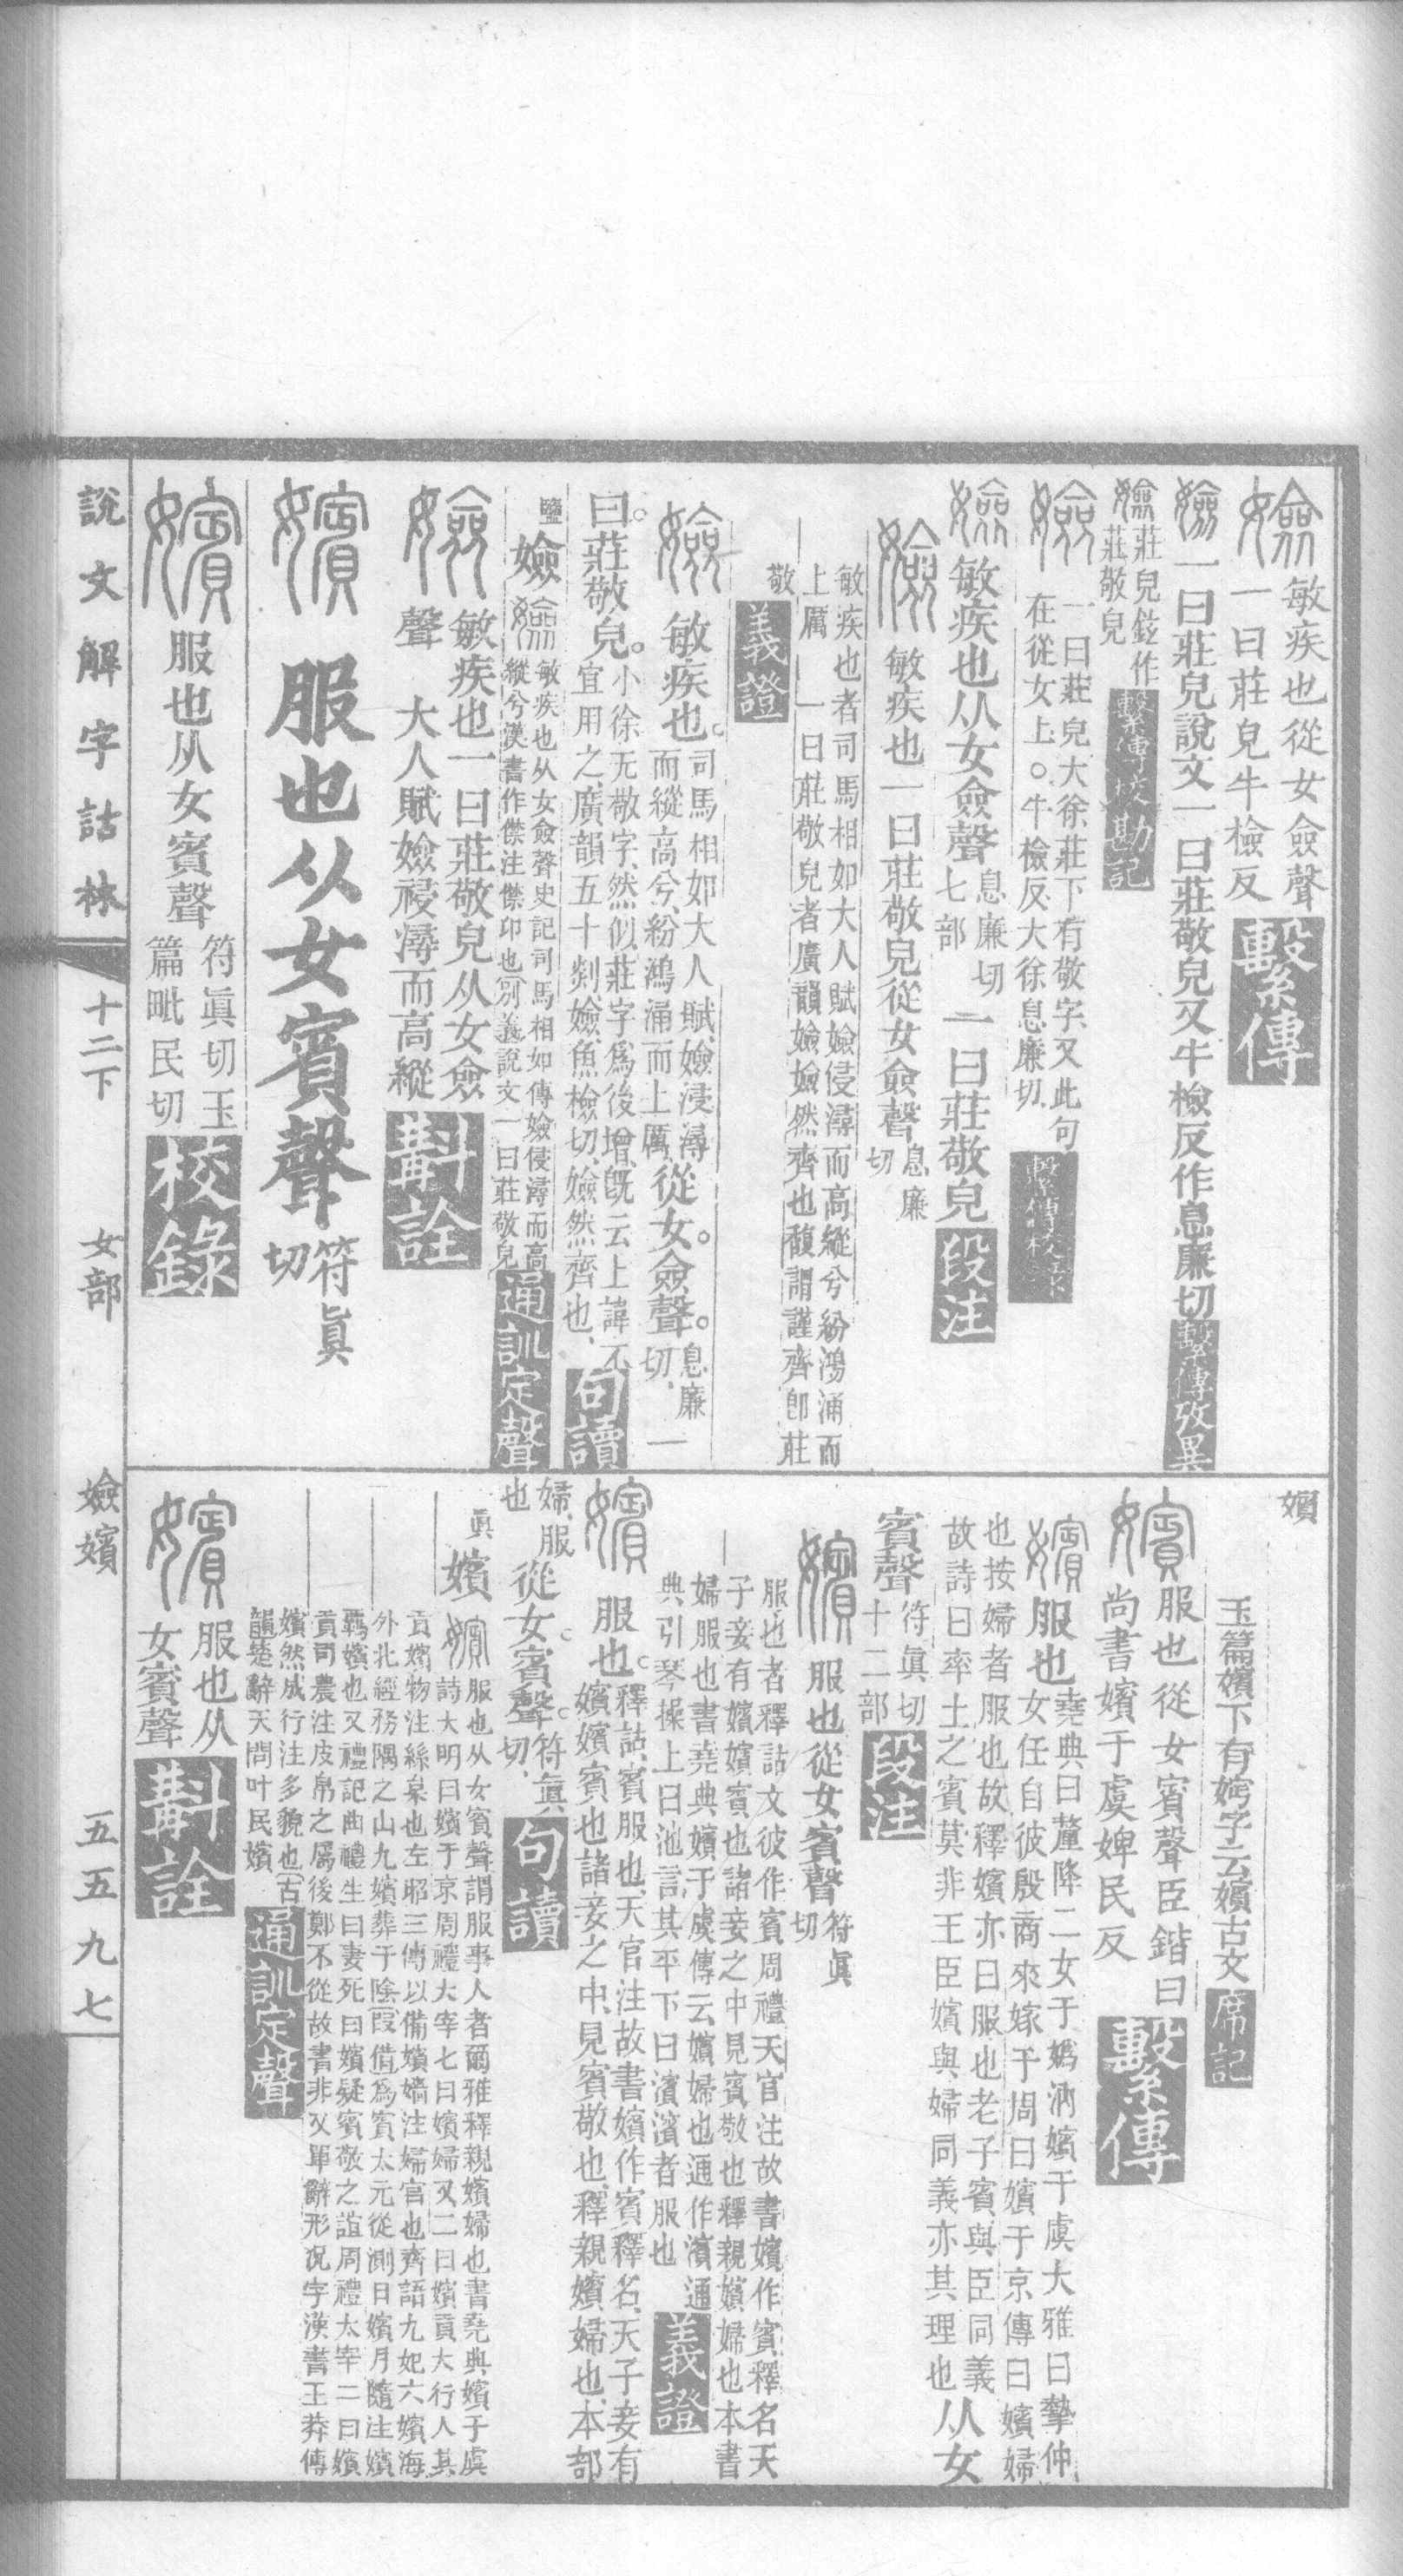 嬐 敏疾也從女僉聲
一曰莊皃牛檢反 繫傳
嬐 一曰莊皃說文一曰莊敬皃又牛檢反作息廉切 繫傳攷異
嬐 莊皃鉉作
莊敬皃 繫傳校勘記
嬐 一曰莊皃大徐莊下有敬字又此句
在從女上○牛檢反大徐息廉切 繫傳校錄
嬐 敏疾也从女僉聲 息廉切
七部 一曰莊敬皃 段注
嬐 敏疾也一曰莊敬皃從女僉聲 息廉
切
敏疾也者司馬相如大人賦嬐侵潯而高縱兮紛鴻涌而
上厲 一曰莊敬皃者廣韻嬐嬐然齊也馥謂謹齊卽莊
敬 義證
嬐 敏疾也。 司馬相如大人賦、嬐浸潯
而縱高兮、紛鴻涌而上厲、 從女。僉聲。 息廉
切、 一
曰。莊敬皃。 小徐无敬字、然似莊字爲後增、旣云上諱、不
宜用之、廣韻五十剡、嬐、魚檢切、嬐然齊也、 句讀
鹽 嬐 敏疾也从女僉聲史記司馬相如傳嬐侵潯而高
縱兮漢書作傑注傑卬也〔別義〕說文一曰莊敬皃 通訓定聲
嬐 敏疾也一曰莊敬皃从女僉
聲 大人賦嬐祲潯而高縱 斠詮
嬪 服也从女賓聲 符眞
切
嬪 服也从女賓聲 符眞切玉
篇毗民切 校錄
嬪
玉篇嬪下有㛦字云嬪古文 席記
嬪 服也從女賓聲臣鍇曰
尚書嬪于虞婢民反 繫傳
嬪 服也 堯典曰釐降二女于嬀汭嬪于虞大雅曰摯仲
女任自彼殷商來嫁于周曰嬪于京傳曰嬪婦
也按婦者服也故釋嬪亦曰服也老子賓與臣同義
故詩曰率土之賓莫非王臣嬪與婦同義亦其理也 从女
賓聲 符眞切
十二部 段注
嬪 服也從女賓聲 符眞
切
服也者釋詁文彼作賓周禮天官注故書嬪作賓釋名天
子妾有嬪嬪賓也諸妾之中見賓敬也釋親嬪婦也本書
婦服也書堯典嬪于虞傳云嬪婦也通作濱通
典引琴操上曰池言其平下曰濱濱者服也 義證
嬪 服也。 釋詁、賓服也、天官注、故書嬪作賓、釋名、天子妾有
嬪、嬪賓也、諸妾之中、見賓敬也、釋親、嬪婦也、本部
婦、服
也 從女。賓聲。 符眞
切、 句讀
眞 嬪 服也从女賓聲謂服事人者爾雅釋親嬪婦也書堯典嬪于虞
詩大明曰嬪于京周禮大宰七曰嬪婦又二曰嬪貢大行人其
貢嬪物注絲枲也左昭三傳以備嬪嬙注婦官也齊語九妃六嬪海
外北經務隅之山九嬪葬于陰〔叚借〕爲賓太元從測日嬪月隨注嬪
羈嬪也又禮記曲禮生曰妻死曰嬪疑賓敬之誼周禮太宰二曰嬪
貢司農注皮帛之屬後鄭不從故書非又單辭形況字漢書王莽傳
嬪然成行注多貌也〔古
韻〕楚辭天問叶民嬪 通訓定聲
嬪 服也从
女賓聲 斠詮
說文解字詁林 十二下 女部 嬐嬪 五五九七